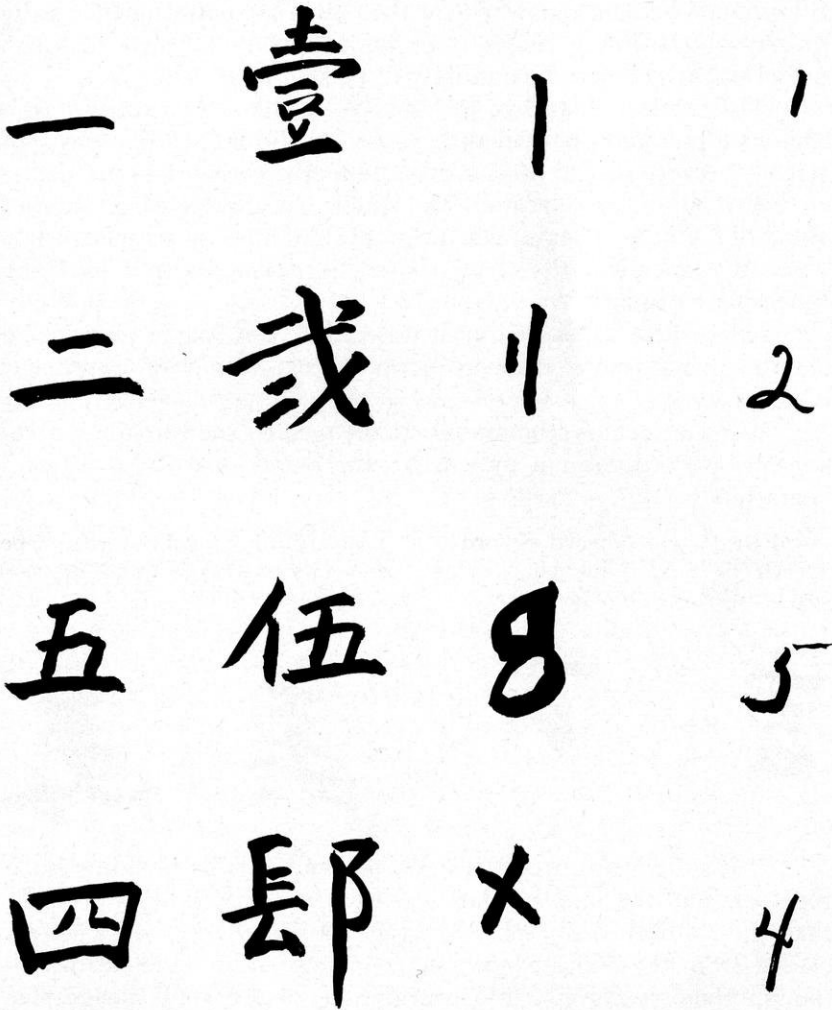 一 壹 〡 1
二 弐 〢 2
五 伍 〥 5
四 〤 4